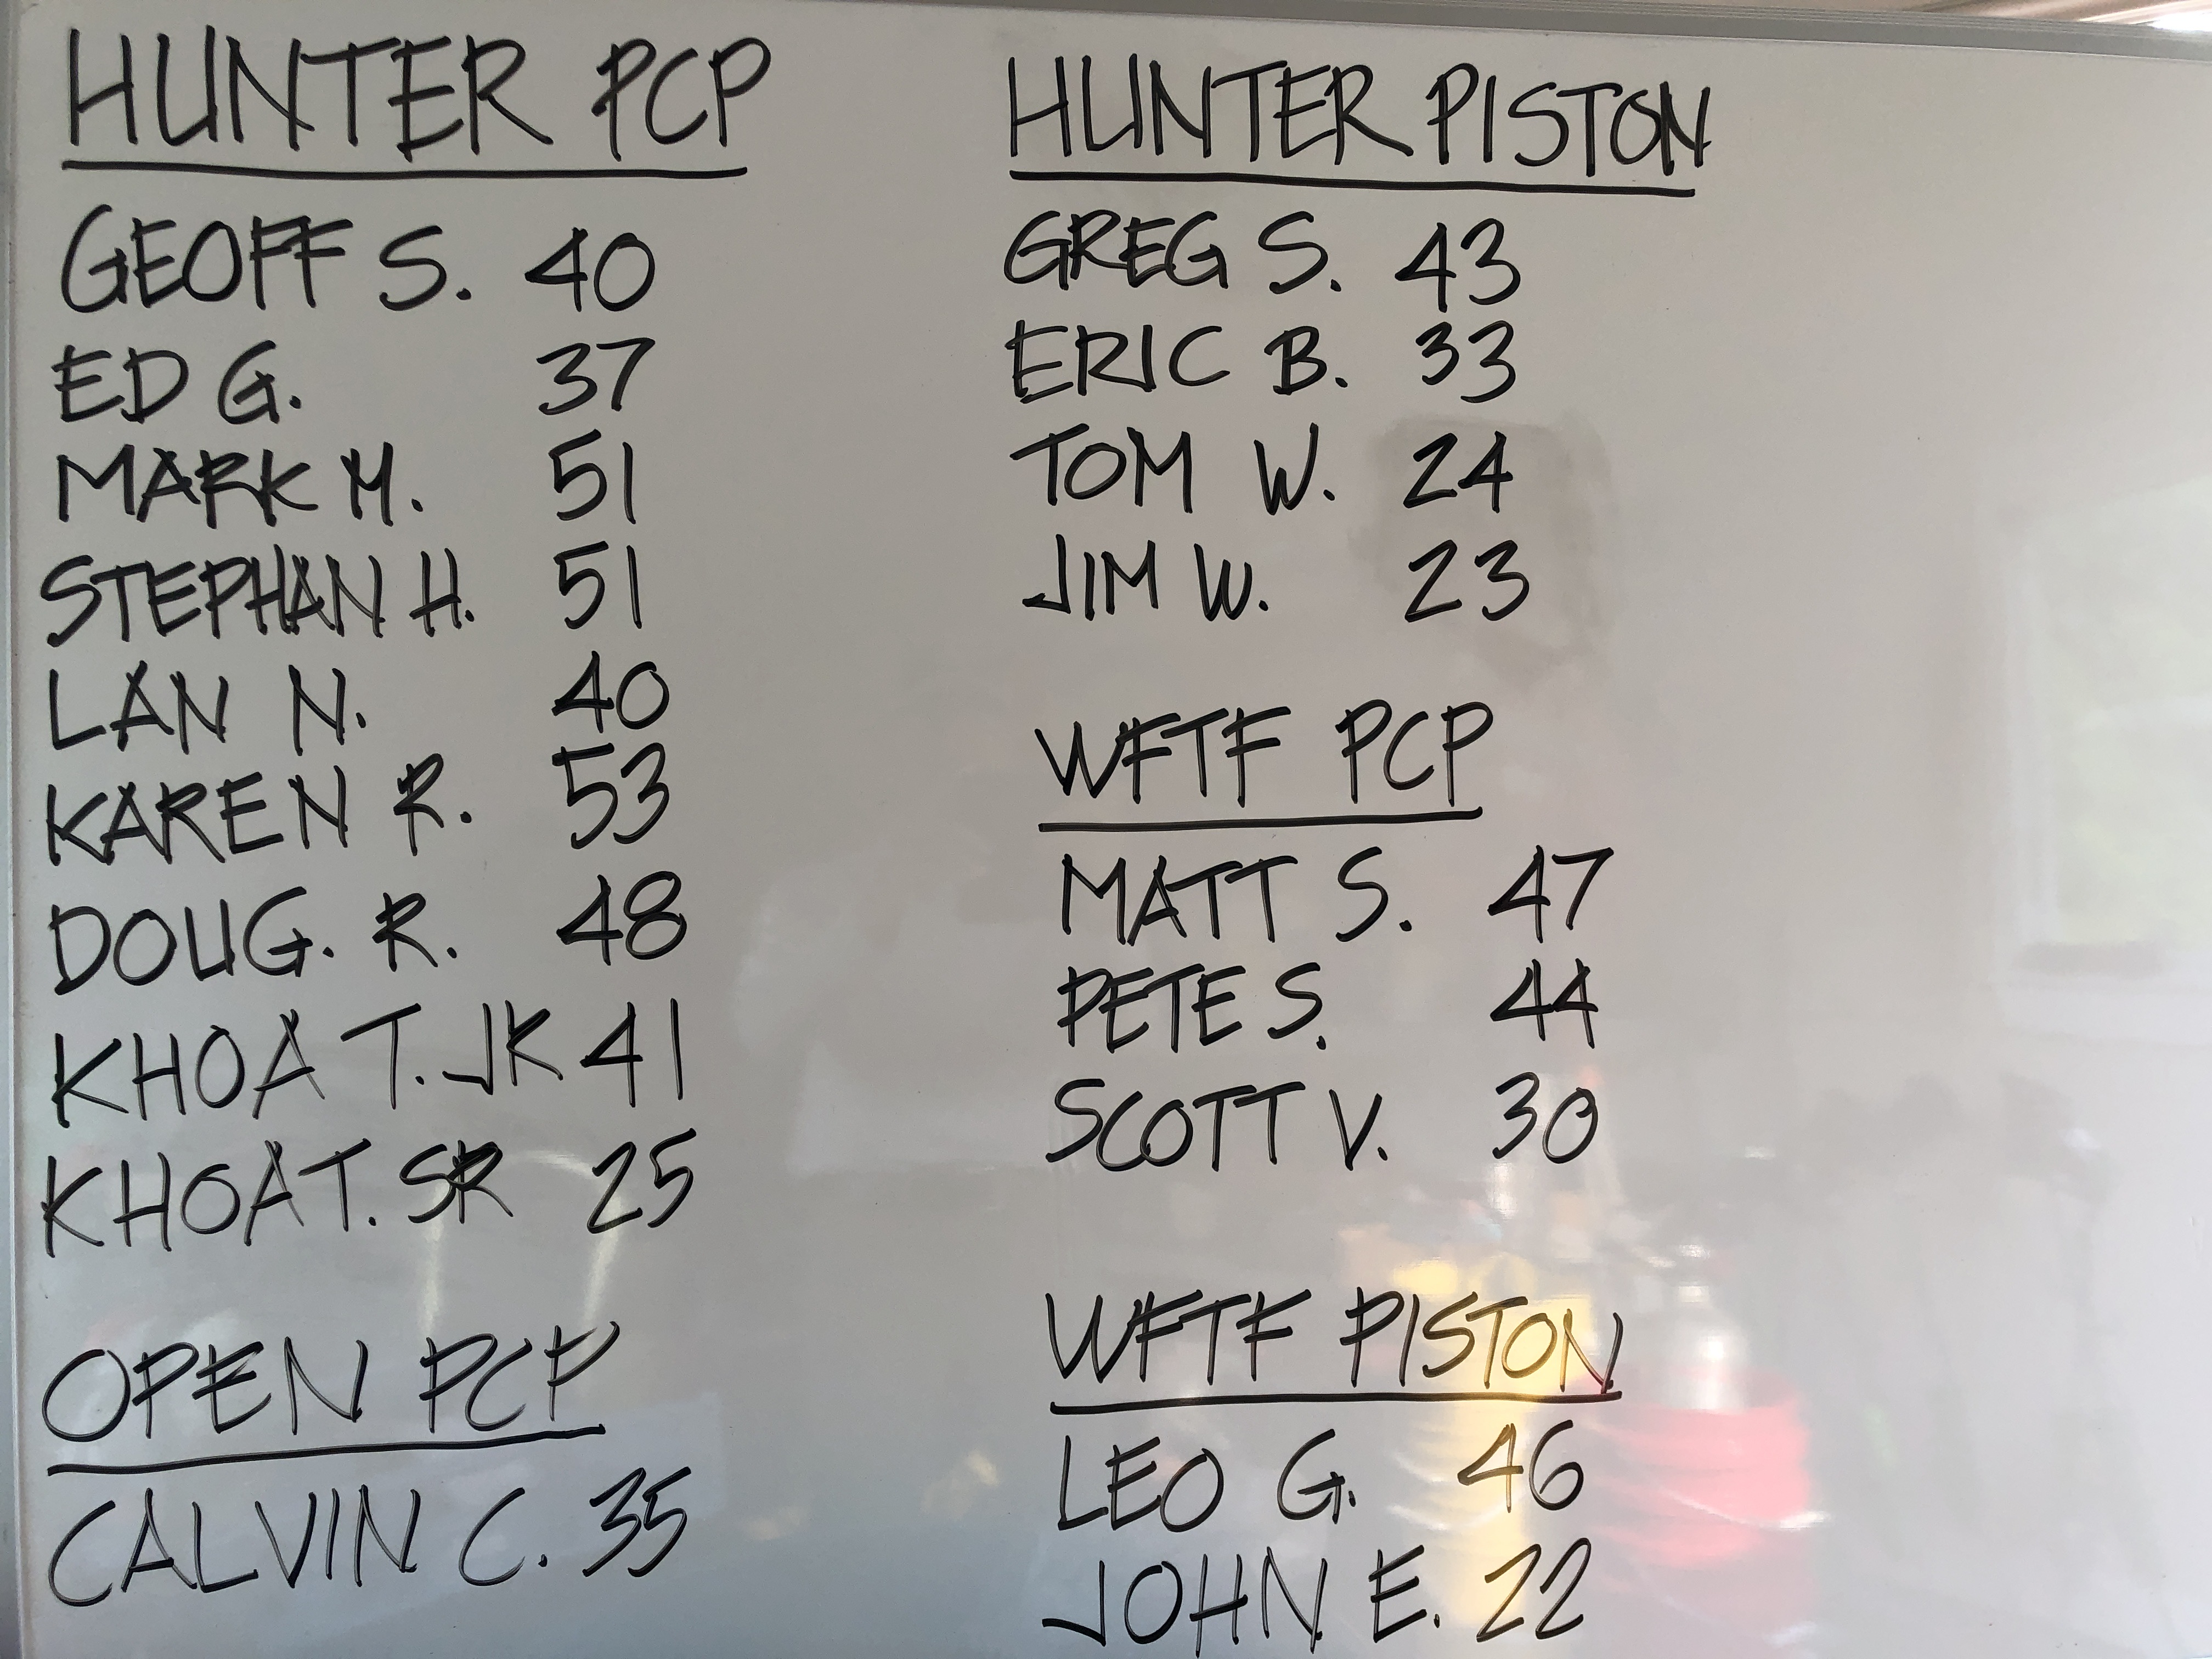 HUNTER PCP
GEOFF S. 40
ED G. 37
MARK M. 51
STEPHAN H. 51
LAN N. 40
KAREN R. 53
DOUG. R. 48
KHOA T. JR 41
KHOA T. SR 25
OPEN PCP
CALVIN C. 35
HUNTER PISTON
GREG S. 43
ERIC B. 33
TOM W. 24
JIM W. 23
WFTF PCP
MATT S. 47
PETE S. 44
SCOTT V. 30
WFTF PISTON
LEO G. 46
JOHN E. 22